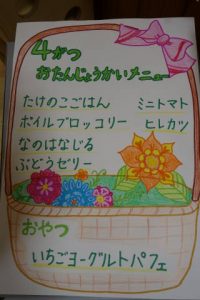 4がつ
おたんじょうかいメニュー
たけのこごはん　ミニトマト
ボイルブロッコリー　ヒレカツ
なのはなじる
ぶどうゼリー
おやつ
いちごヨーグルトパフェ